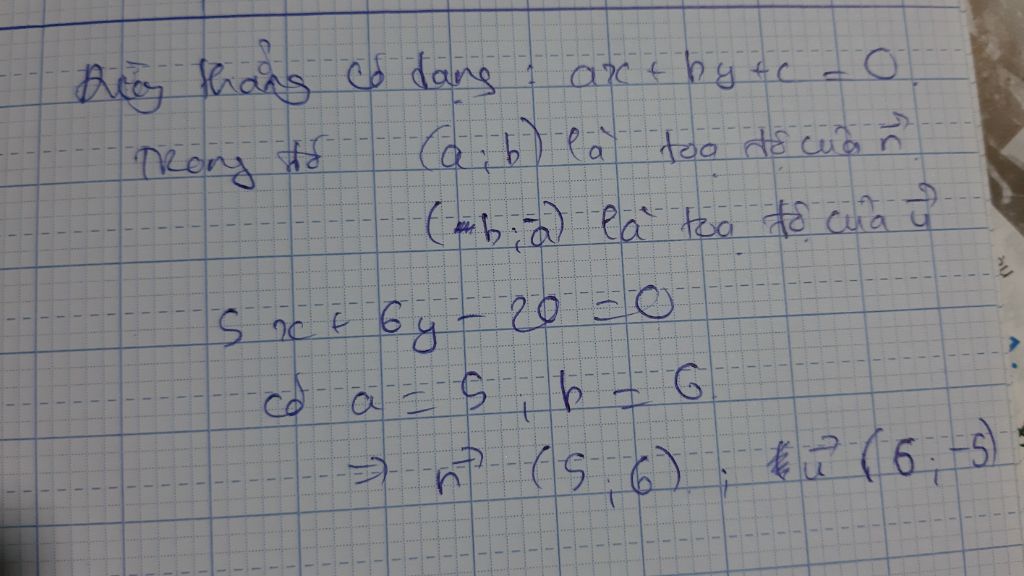 Đường thẳng có dạng : ax + by + c = 0
Trong đó (a ; b) là tọa độ của n⃗
(-b ; a) là tọa độ của u⃗
5x + 6y - 20 = 0
có a = 5 , b = 6
=> n⃗ (5 ; 6) ; u⃗ (6 ; -5)